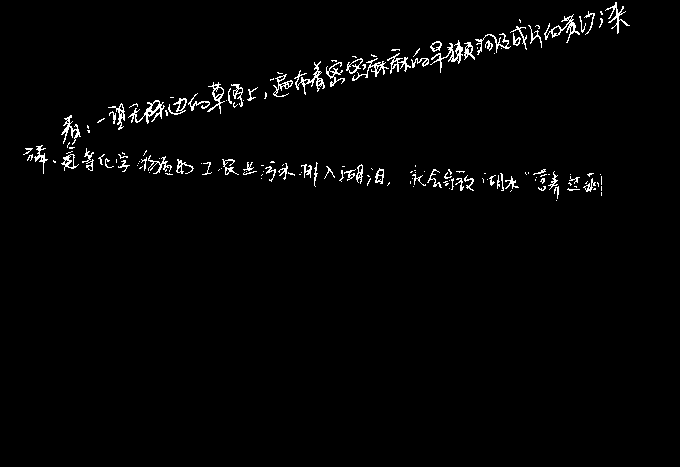 看:一望无际边的草原上,遍布着密密麻麻的旱獭洞及成片的黄沙
磷、氮等化学物质的工农业污水排入湖泊,就会导致湖水"营养过剩